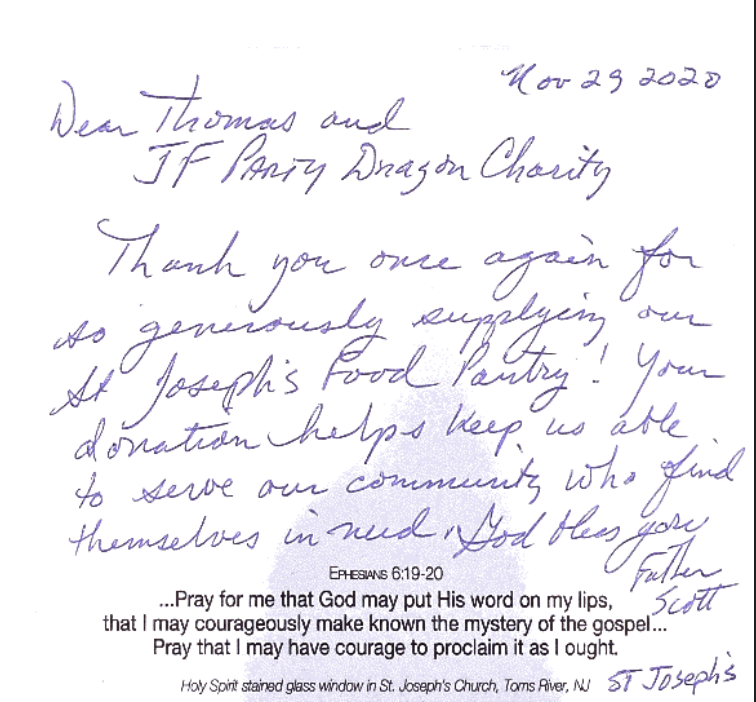 Nov 29 2020
Dear Thomas and
JF PARTY Dragon Charity
Thank you once again for
so generously supplying our
St Joseph's Food Pantry! Your
donation helps keep us able
to serve our community who find
themselves in need. God bless you
Father
Scott
EPHESIANS 6:19-20
...Pray for me that God may put His word on my lips,
that I may courageously make known the mystery of the gospel...
Pray that I may have courage to proclaim it as I ought.
Holy Spirit stained glass window in St. Joseph's Church, Toms River, NJ
ST Joseph's